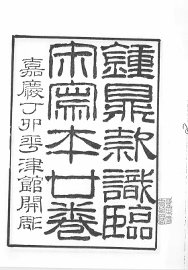 鍾鼎款識臨
宋寫本廿卷
嘉慶丁卯平津館開彫